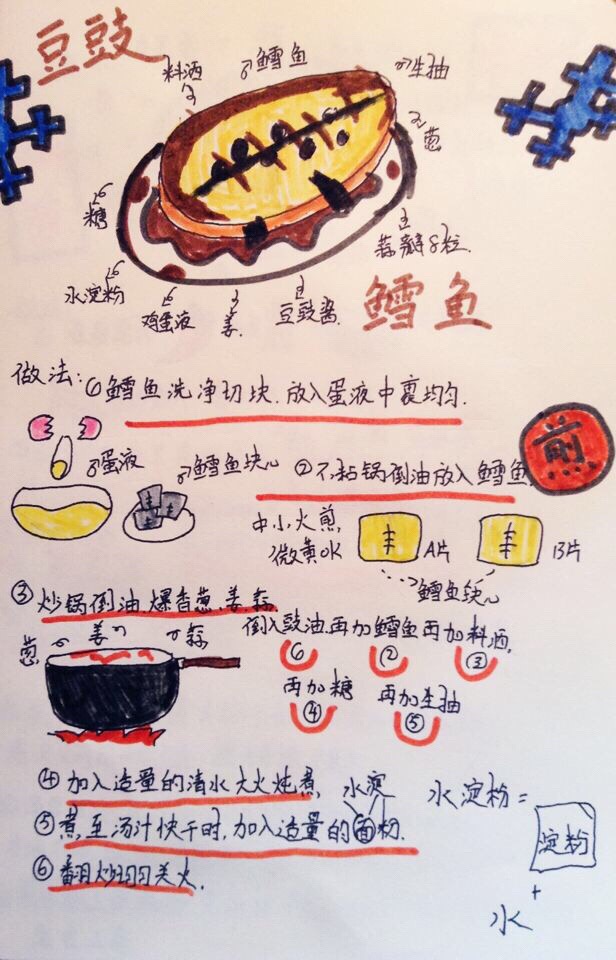 豆豉
料酒
鳕鱼
生抽
葱
糖
蒜瓣8粒
水淀粉
鸡蛋液
姜
豆豉酱
鳕鱼
做法:
①鳕鱼洗净切块.放入蛋液中裹均匀.
蛋液
鳕鱼块
②不粘锅倒油放入鳕鱼
煎
中小火煎
微黄OK
A片
B片
鳕鱼块
③炒锅倒油.爆香葱、姜、蒜
葱
姜
蒜
倒入豉油,再加鳕鱼再加料酒,
① ② ③
再加糖 再加生抽
④ ⑤
④加入适量的清水大火炖煮,
水淀
⑤煮至汤汁快干时,加入适量的面粉.
⑥翻炒均匀关火.
水淀粉=
淀粉
+
水